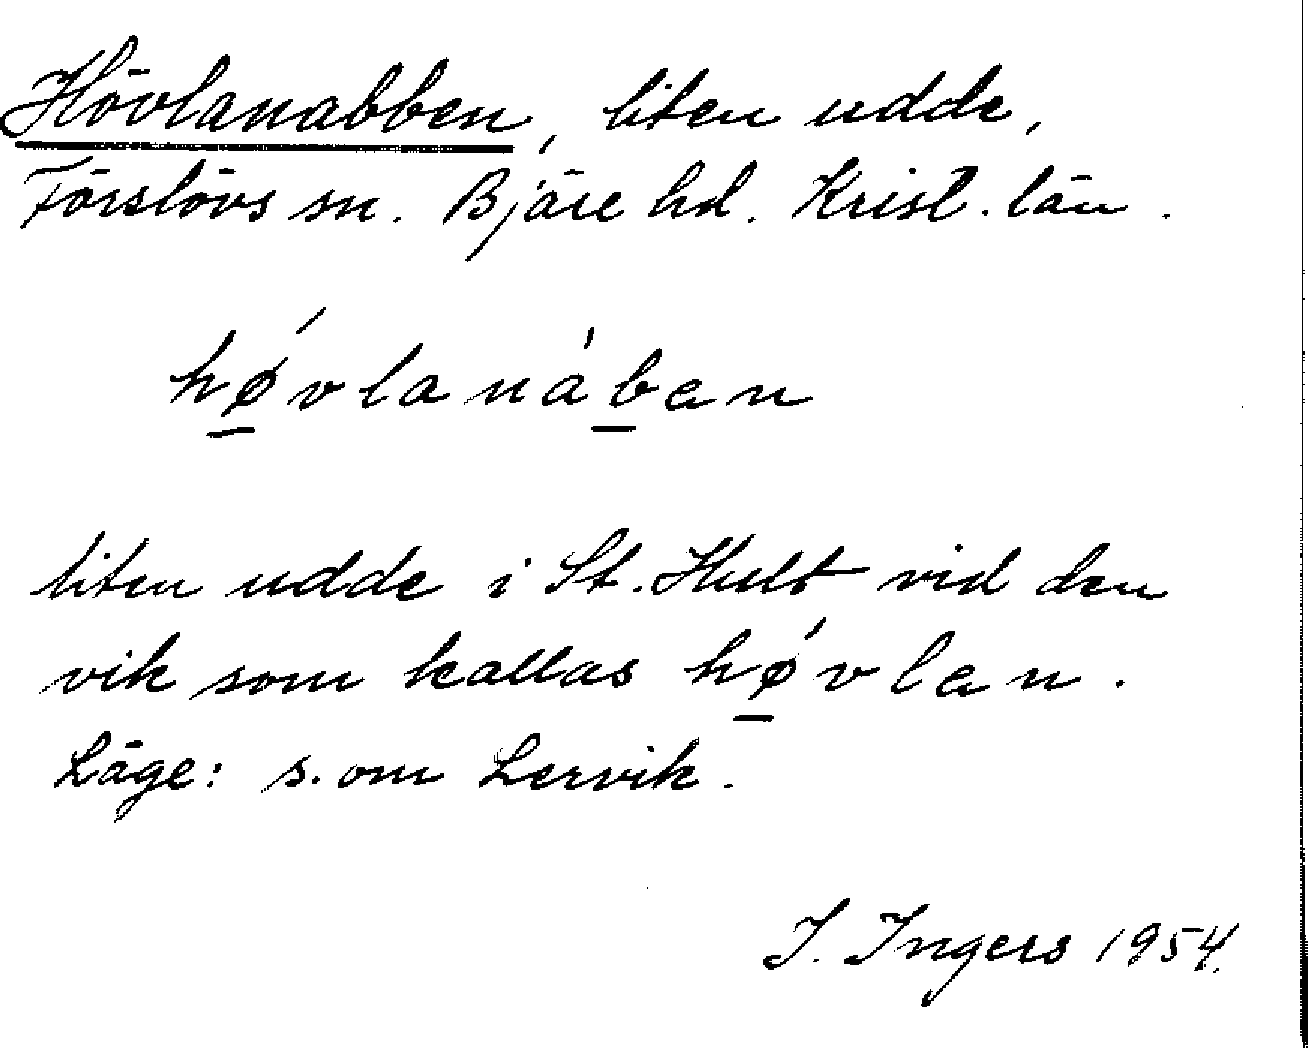 Hövlanabben, liten udde,
Förslövs sn. Bjäre hd. Krist. län.
hǿ̠vlanáb̠en
liten udde i St. Hult vid den
vik som kallas hǿ̠vlen.
Läge: s. om Lervik.
I. Ingers 1954.